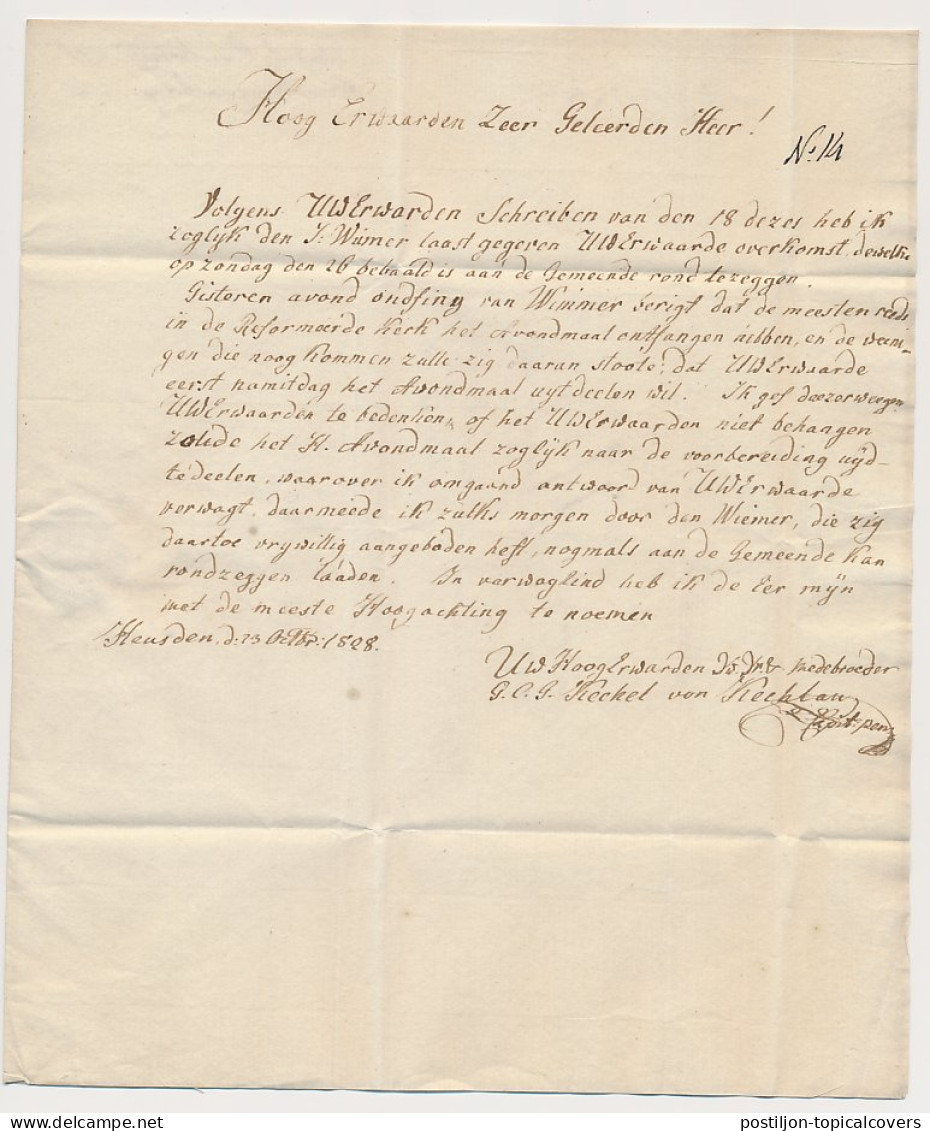 Hoog Erwaarden Zeer Geleerden Heer!
No 14
Volgens UWErwarden Schreiben van den 18 dezes heb ik
zoglijk den J: Wimer laast gegeven UWErwaarde overkomst, dewelke
op zondag den 26 bebaald is aan de Gemeende rond tezeggen.
Gisteren avond ondfing van Wimmer berigt dat de meesten reeds
in de Reformeerde Kerk het Avondmaal ontfangen hebben, en de weini-
gen die noog kommen zulle zig daaran stoote, dat UWErwaarde
eerst namitdag het Avondmaal uytdeelen wil. Ik gef deezerweegen
UWErwaarden te bedenken, of het UWErwaarden niet behangen
zolide het H. Avondmaal zoglijk naar de voorbereiding uyd-
tedeelen, waarover ik omgaand antwoord van UWErwaarde
verwagt, daarmeede ik zulks morgen door den Wiemer, die zig
daartoe vrywillig aangeboden heft, nogmals aan de Gemeende kan
rondzeggen laaden. In verwagtind heb ik de Eer mijn
met de meeste Hoogachting te noemen
Heusden, d: 23 Octbr: 1828.
Uw HoogErwarden medebroeder
G. C. G. Keckel von Kechlau
postiljon-topicalcovers